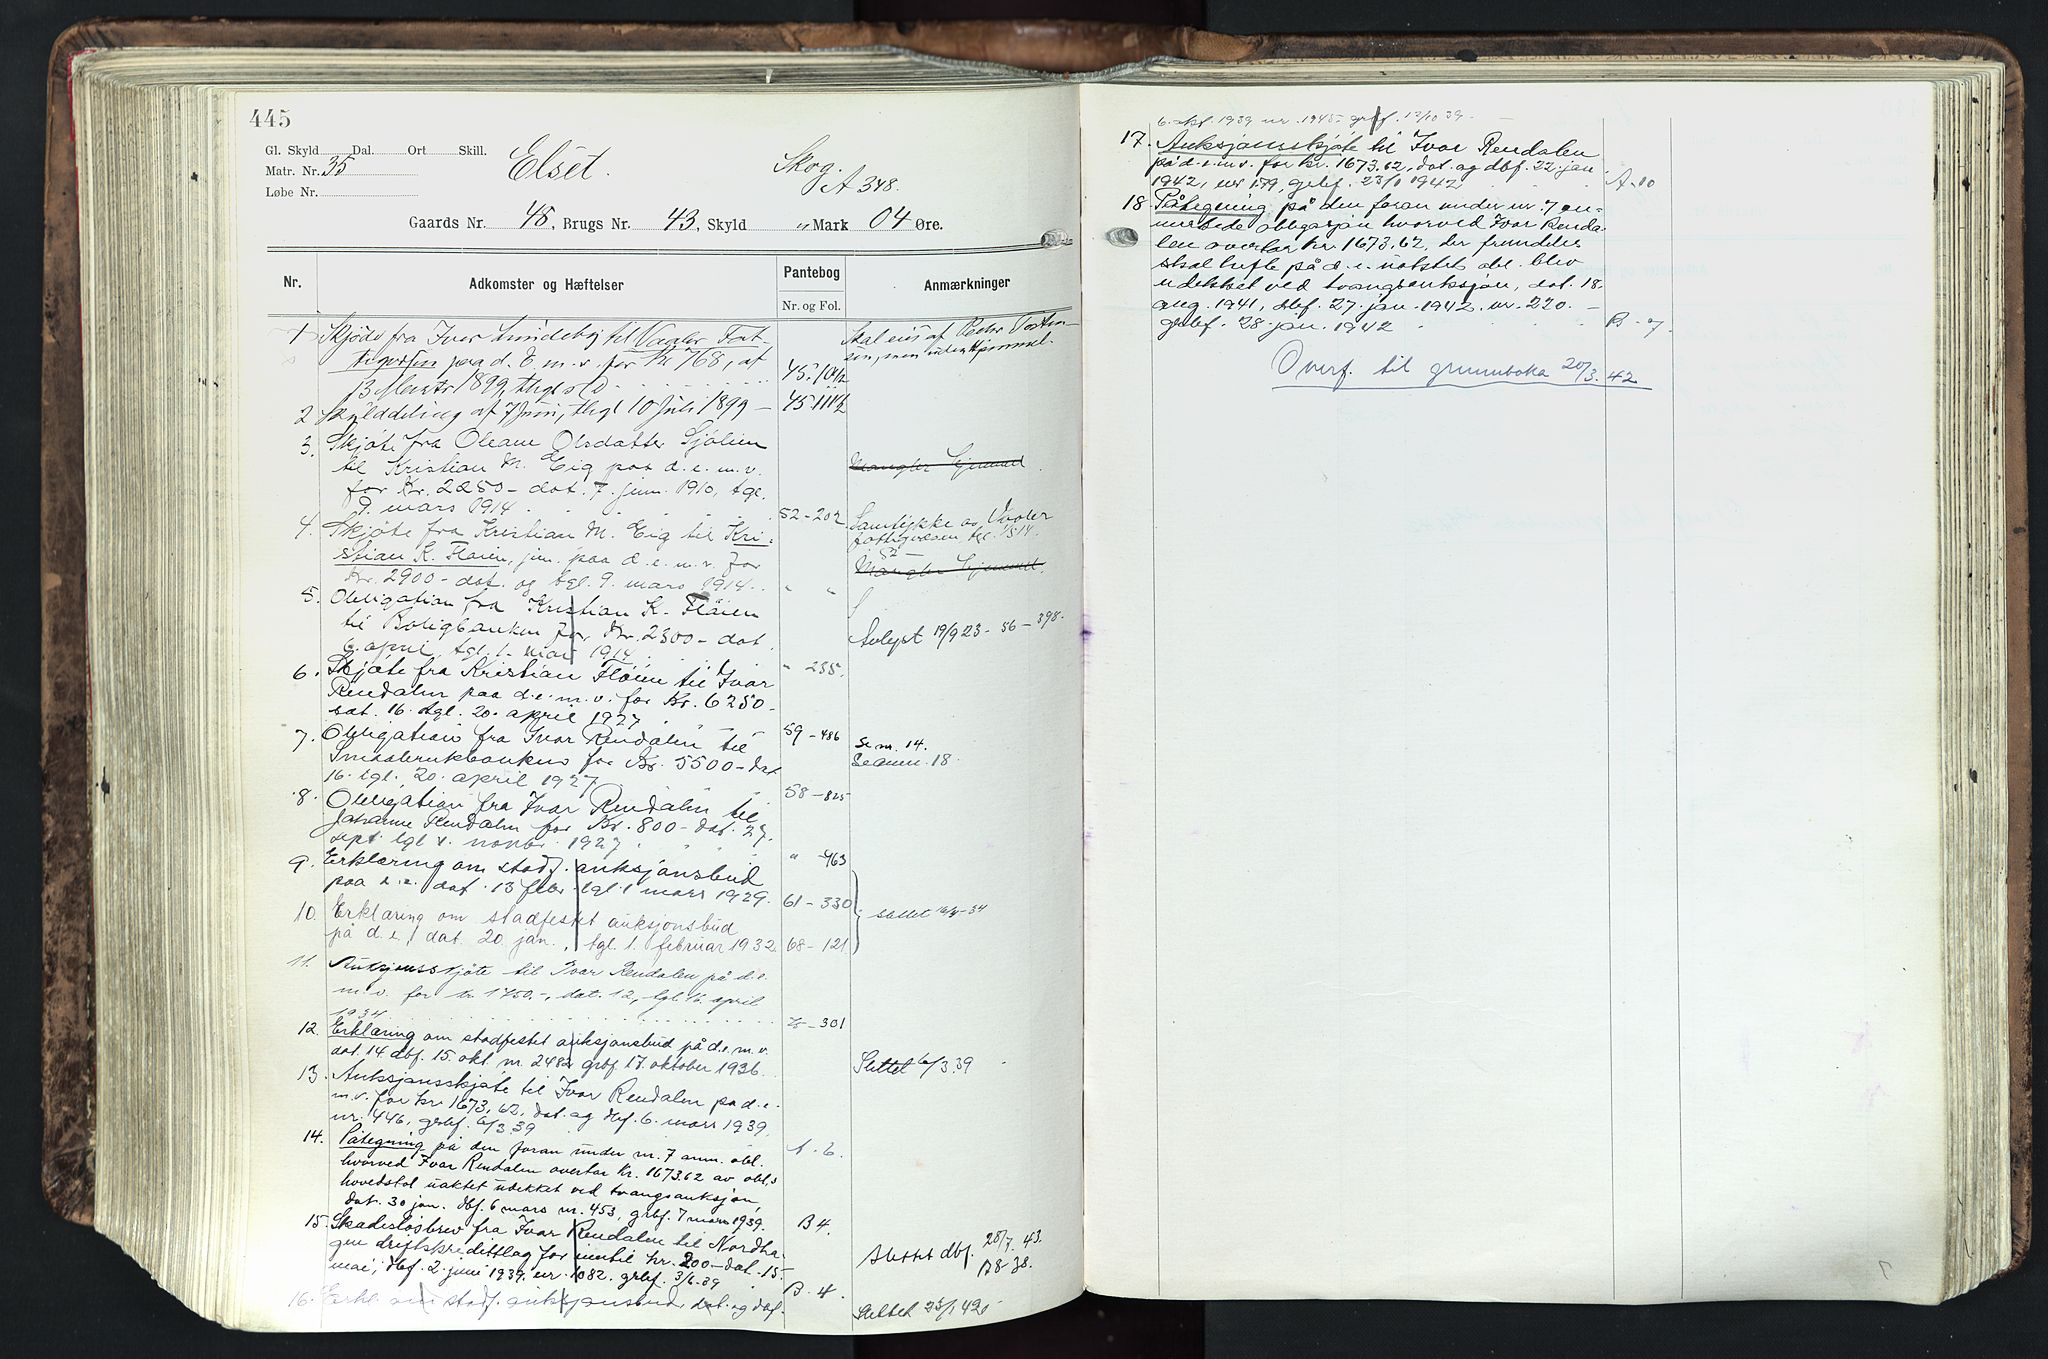 445
Gl. Skyld Dal. Ort Skill.
Matr. Nr. 35
Løbe Nr.
Elset.
Skog.
A 348.
Gaards Nr. 48, Brugs Nr. 43, Skyld „ Mark 04 Øre.
Nr.
Adkomster og Hæftelser
Pantebog
Nr. og Fol.
Anmærkninger
1 Skjøde fra Iver Lundeby til Vaaler Fat-
tigvæsen paa d. E. m. v. for Kr 768, af
13 Marts 1899, thgl s D
Skal eies af Peder Tosten-
sen, men uden Hjemmel.
45. 101/2
2 Skylddeling af 7 Juni, thgl 10 Juli 1899 – 45 111 1/2
3. Skjøte fra Oleane Olsdatter Sjølien
til Kristian M. Eig paa d. e. m. v.
for Kr. 2250 – dat. 7. juni 1910, tgl.
9. mars 1914
52 – 202
Mangler hjemmel.
4. Skjøte fra Kristian M. Eig til Kri-
stian K. Fløien, jun. paa d. e. m. v. for
Kr. 2900 – dat. og tgl. 9. mars 1914. „ „
Samtykke av Vaaler
fattigvæsen tgl.
52 –
Mangler hjemmel.
5. Obligation fra Kristian K. Fløien
til Boligbanken for Kr. 2300 – dat.
6. april, tgl. 1. mai 1914
„ 235.
Avlyst 19/9 23 – 56 – 398.
6. Skjøte fra Kristian Fløien til Ivar
Rendalen paa d. e. m. v. for Kr. 6250 –
dat. 16. tgl. 20. april 1927
59 – 486
7. Obligation fra Ivar Rendalen til
Smaabrukbanken for Kr. 5500 – dat
16. tgl. 20. april 1927
58 – 825
Se nr. 14.
Se anm. 18.
8. Obligation fra Ivar Rendalen til
Johanne Rendalen for Kr. 800 – dat. 27.
sept. tgl 1. novbr. 1927
„ – 463
9. Erklæring om stadf. auksjonsbud
paa d. e. dat. 13 febr. tgl 1 mars 1929. 61 – 330
10. Erklæring om stadfestet auksjonsbud
på d. e., dat. 20. jan., tgl. 1. februar 1932. 68 – 121
slettet 16/4 – 34
11. Auksjonsskjøte til Ivar Rendalen på d. e.
m. v. for kr. 1750.–, dat. 12, tgl. 16. april
1934 – 301
12. Erklæring om stadfestet auksjonsbud på d. e. m. v.
dat. 14 dbf. 15. okt. nr. 2482 grbf 17. oktober 1936.
Slettet 6/3.39
13. Auksjonsskjøte til Ivar Rendalen på d. e.
m. v. for kr. 1673,62, dat. og dbf. 6. mars 1939,
nr. 446, grbf. 6/3 39
A. 6.
14. Påtegning på den foran under nr. 7 anm. obl.
hvorved Ivar Rendalen overtar kr. 1673.62 av obl.s
hovedstol uaktet udekket ved tvangsauksjon,
dat. 30 jan. dbf. 6 mars nr. 453, grbf. 7 mars 1939.
B 4.
15. Skadesløsbrev fra Ivar Rendalen til Nordha-
gen driftskredittlag for inntil kr. 200 – dat. 15.
mai, dbf. 2. juni 1939. nr. 1082. grbf. 3/6 39
B. 4.
Slettet dbf. 28/7. 43.
16. Erkl. om stadf. auksjonsbud, dat. og dbf.
Slettet 23/1 42
6. okt. 1939 nr. 1945 – grbf. 12/10 39. –
17. Auksjonsskjøte til Ivar Rendalen
på d. e. m. v. for kr. 1673.62, dat. og dbf. 22. jan
1942, nr 179, grbf. 23/1 1942
A – 10
18. Påtegning på den foran under nr. 7 an-
merkede obligasjon hvorved Ivar Renda-
len overtar kr. 1673.62, der fremdeles
skal hefte på d. e. uaktet obl. blev
udekket ved tvangsauksjon, dat. 18.
aug. 1941, dbf. 27. jan. 1942. nr. 220. –
grbf. 28. jan. 1942
B – 7.
Overf. til grunnboka 20/3. 42